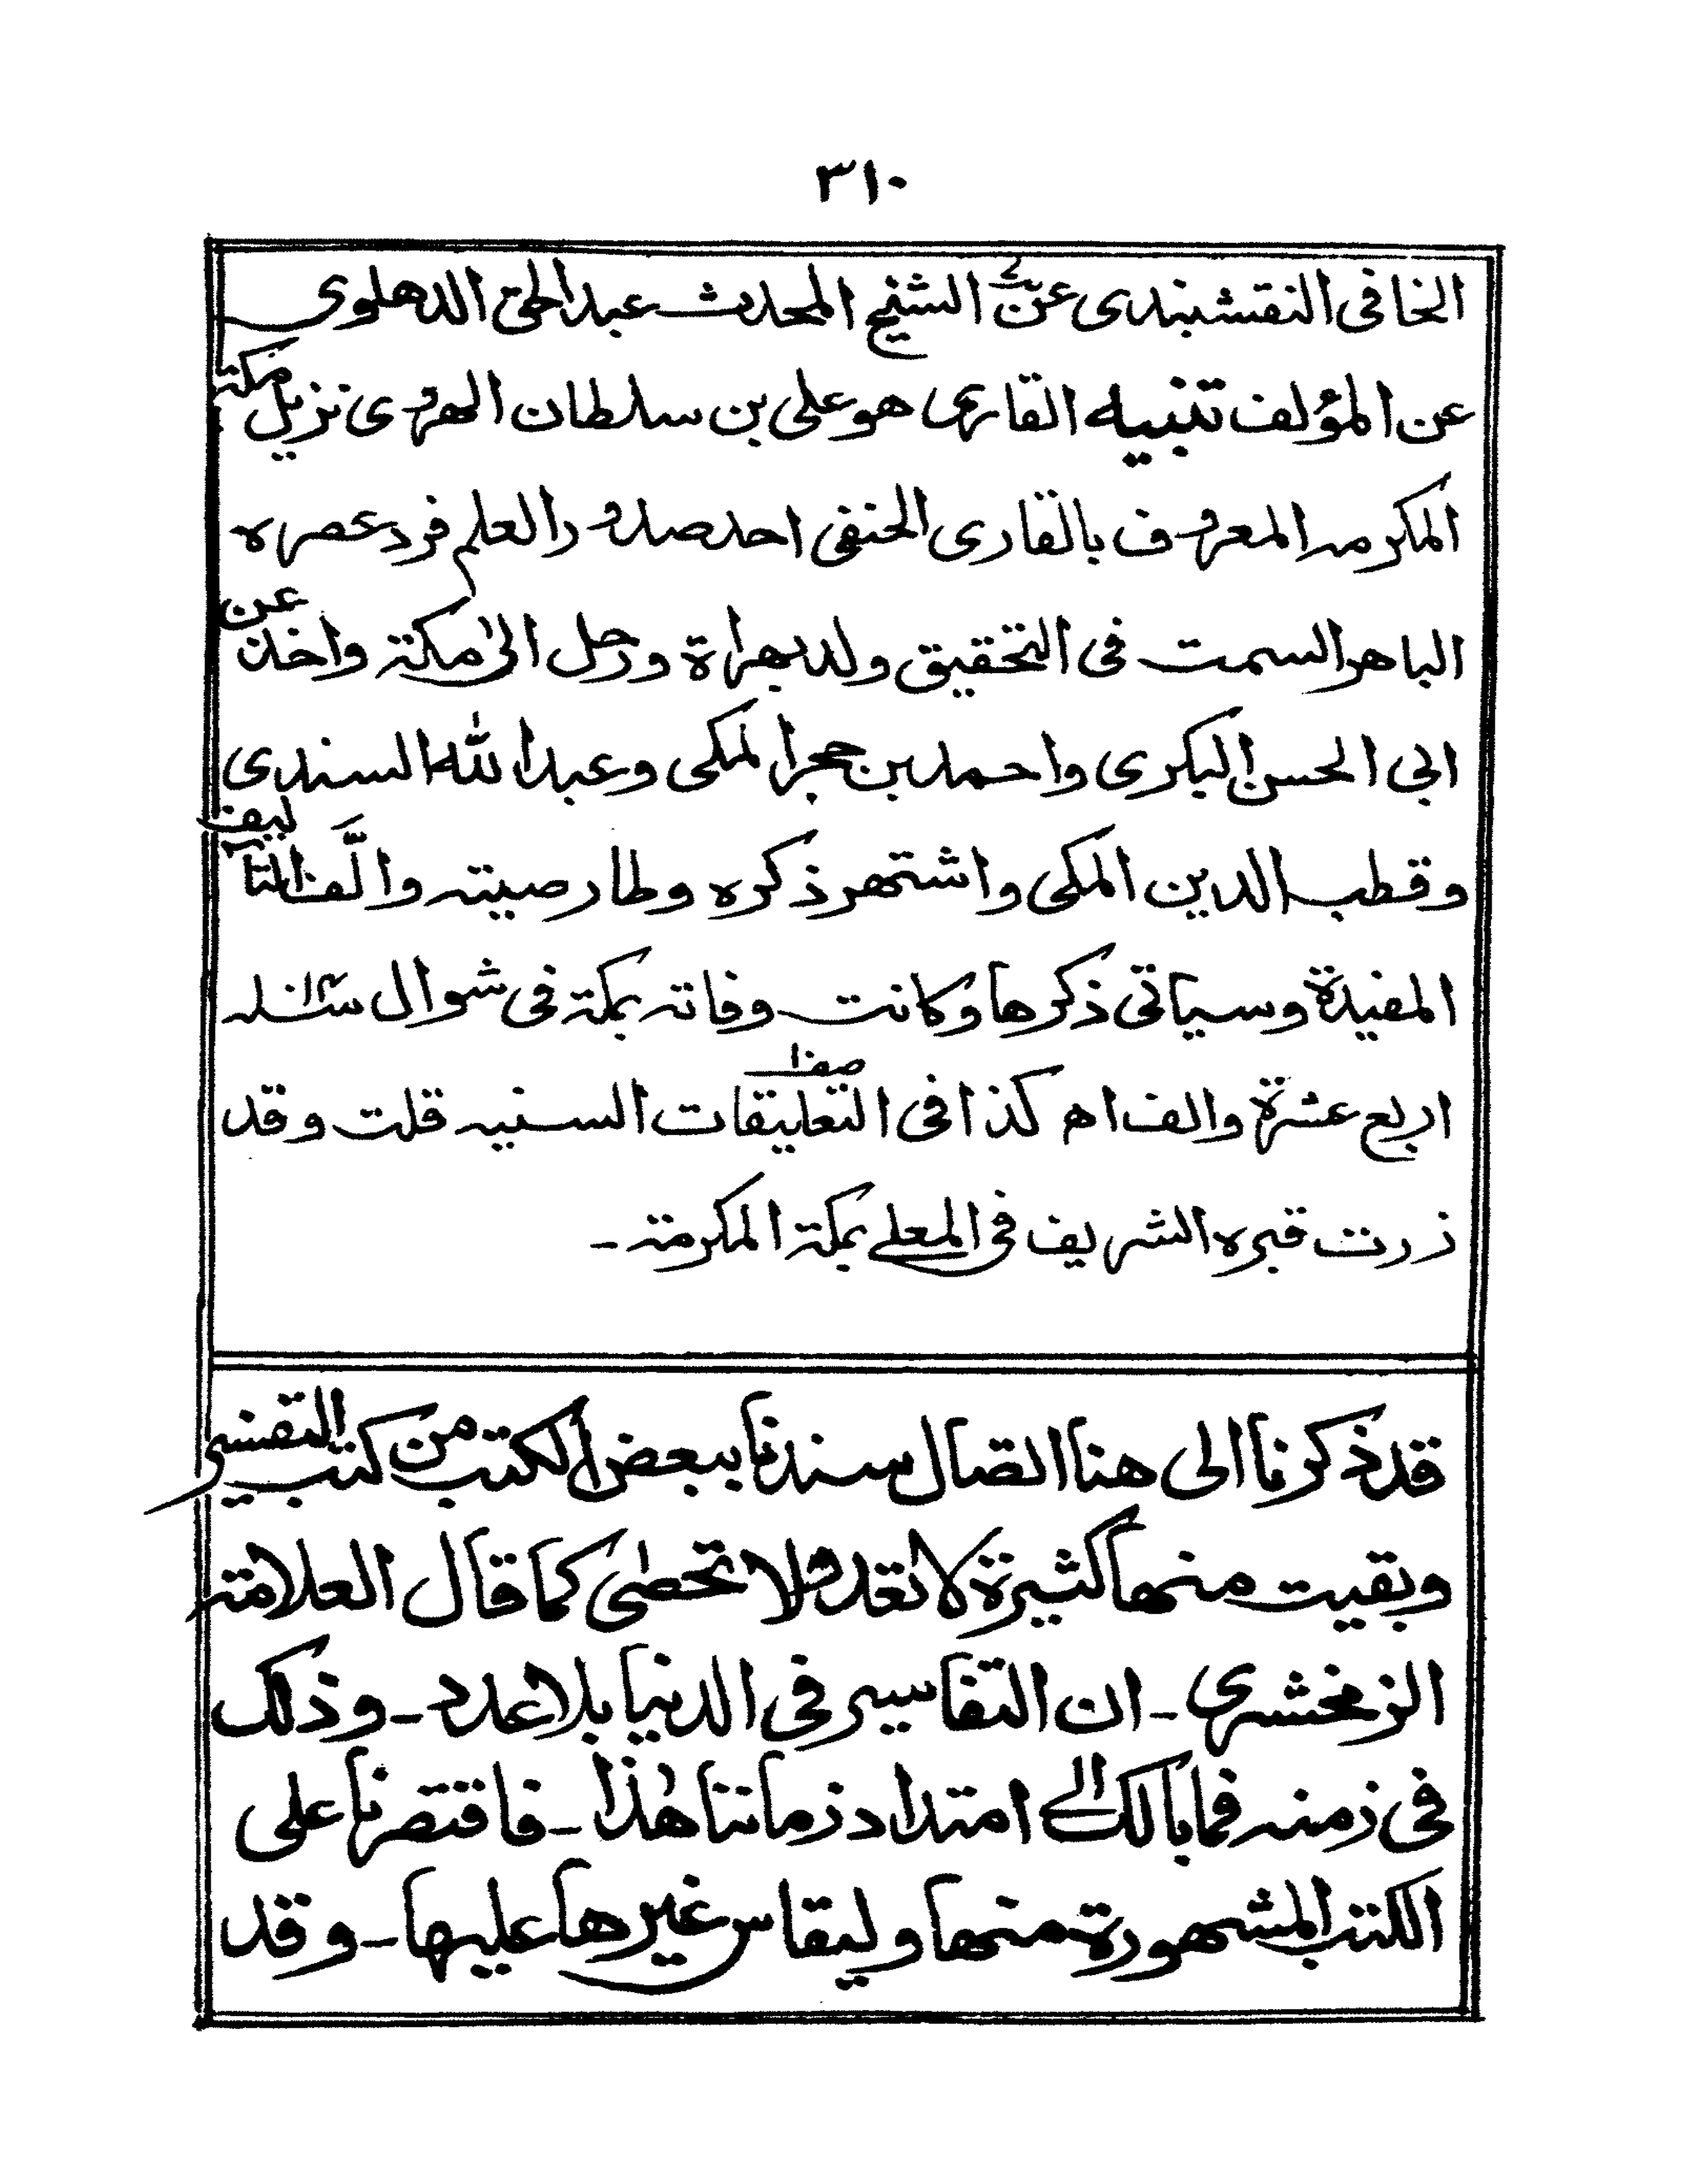 ٣١٠
الخافى النقشبندى عن الشيخ المحدث عبد الحق الدهلوى
عن المؤلف تنبيه القارى هو على بن سلطان الهروى نزيل مكة
المكرمه المعروف بالقارى الحنفى احد صدور العلم فرد عصره
الباهر السمت فى التحقيق ولد بهراة ورحل الى مكة واخذ عن
ابى الحسن البكرى واحمد بن حجر المكى وعبد الله السندى
وقطب الدين المكى واشتهر ذكره وطار صيته والَّف التآليف
المفيدة وسياتى ذكرها وكانت وفاته بمكة فى شوال
اربع عشرة والف اه كذا فى التعليقات السنيه قلت وقد
زرت قبره الشريف فى المعلے بمكة المكرمة ـ
قد ذكرنا الى هنا اتصال سندنا ببعض الكتب من كتب التفسير
وبقيت منها كثيرة لا تعد ولا تحصى كما قال العلامة
الزمخشرى ـ ان التفاسير فى الدنيا بلا عدد ـ وذلك
فى زمنه فما بالك الے امتداد زماننا هٰذا ـ فاقتصرنا على
الكتب المشهورة منها وليقاس غيرها عليها ـ وقد